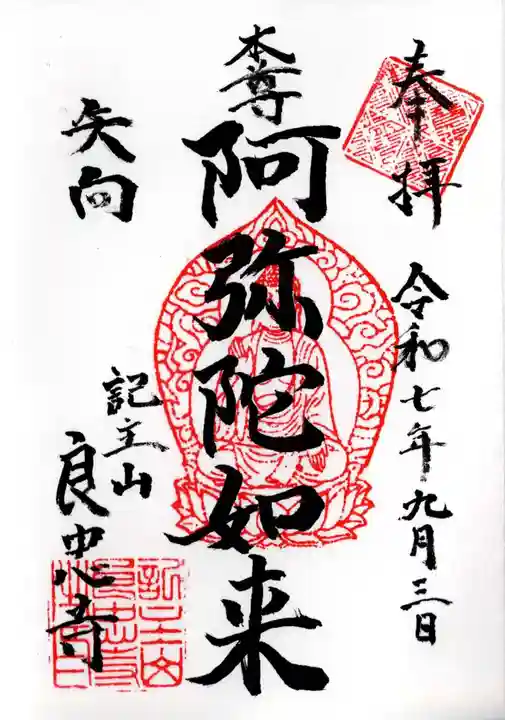 奉拝
令和七年九月三日
本尊
阿弥陀如来
矢向
記主山
良忠寺